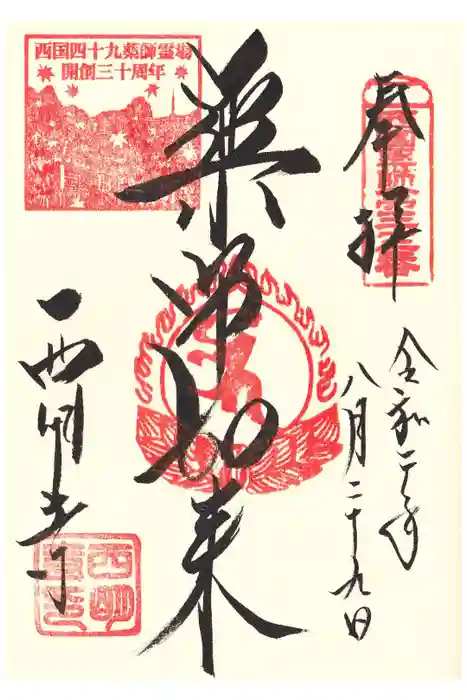 奉拝
令和二年
八月二十九日
薬師如来
西国四十九薬師霊場
開創三十周年
西明寺
西明